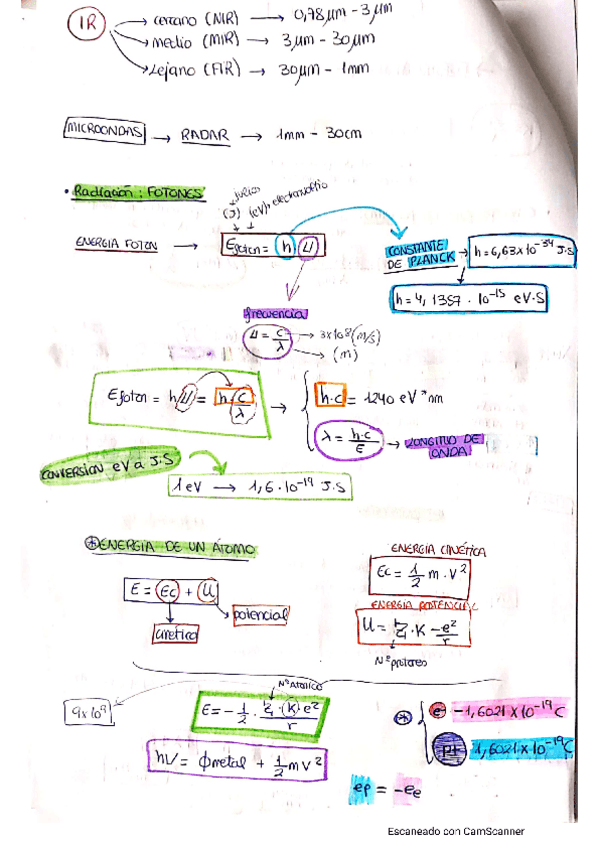 IR
→ cercano (NIR) → 0,78 μm - 3 μm
→ medio (MIR) → 3 μm - 30 μm
→ Lejano (FIR) → 30 μm - 1mm
MICROONDAS → RADAR → 1mm - 30cm
• Radiación: FOTONES
julios
(J) (eV) → electrovoltio
ENERGIA FOTON → Efoton = h ν
CONSTANTE DE PLANCK → h = 6,63x10⁻³⁴ J.S
h = 4,1357 · 10⁻¹⁵ eV·S
frecuencia
ν = c/λ → 3x10⁸ (m/s)
→ (m)
Efoton = hν = h c/λ → h·c = 1240 eV*nm
λ = h·c/E → LONGITUD DE ONDA
CONVERSION eV a J.S
1 eV → 1,6·10⁻¹⁹ J.S
* ENERGIA DE UN ÁTOMO
ENERGIA CINÉTICA
Ec = 1/2 m·v²
E = Ec + U
potencial
cinetica
ENERGIA POTENCIAL
U = Z·K -e²/r
Nº protones
Nº Atomico
9x10⁹
E = -1/2 · Z·(K)·e²/r
hν = ϕmetal + 1/2 mv²
* e⁻ -1,6021x10⁻¹⁹C
p+ 1,6021x10⁻¹⁹C
ep = -ee
Escaneado con CamScanner